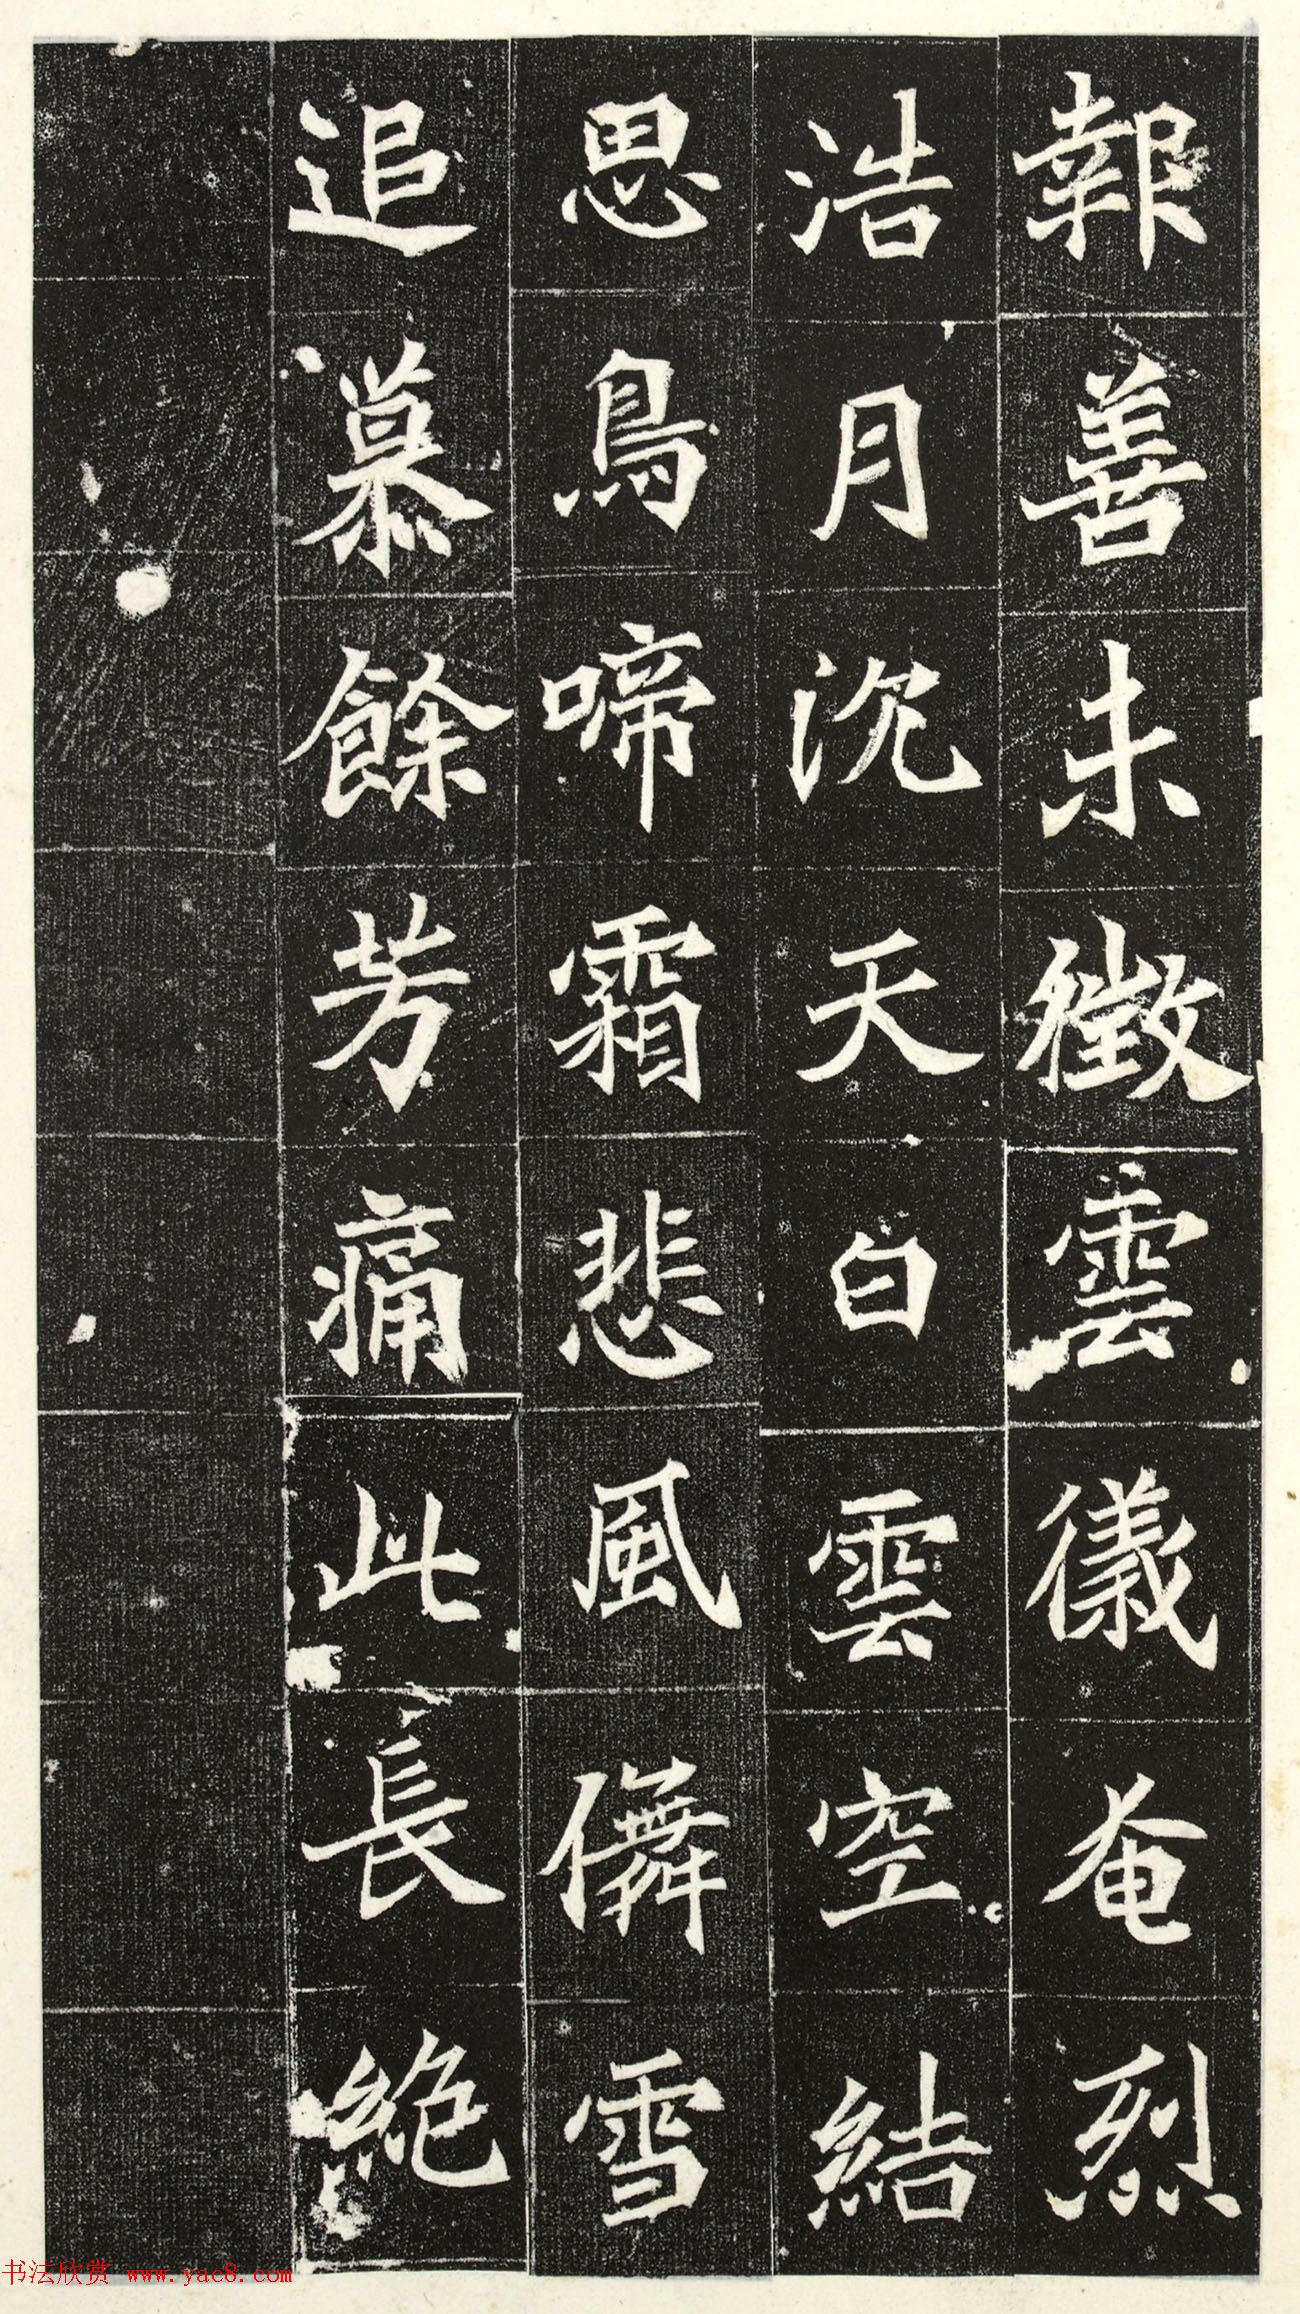 報善未徵雲儀奄烈
浩月沉天白雲空結
思鳥啼霜悲風儛雪
追慕餘芳痛此長絶
书法欣赏 www.yac8.com